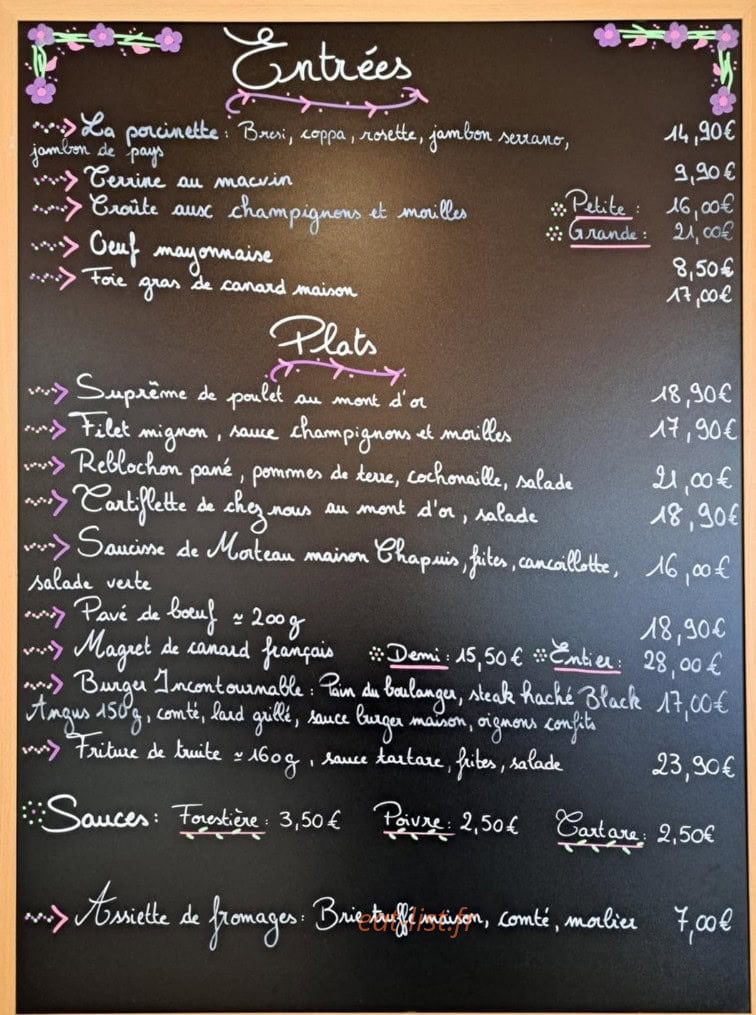 Entrées
La porcinette : Bresi, coppa, rosette, jambon serrano, 14,90€
jambon de pays
Terrine au macvin 9,90€
Croûte aux champignons et morilles Petite : 16,00€
Grande : 21,00€
Oeuf mayonnaise 8,50€
Foie gras de canard maison 17,00€
Plats
Suprême de poulet au mont d'or 18,90€
Filet mignon, sauce champignons et morilles 17,90€
Reblochon pané, pommes de terre, cochonaille, salade 21,00€
Tartiflette de chez nous au mont d'or, salade 18,90€
Saucisse de Morteau maison Chapuis, frites, cancoillotte, 16,00€
salade verte
Pavé de boeuf ≃ 200g 18,90€
Magret de canard français Demi : 15,50€ Entier : 28,00€
Burger Incontournable : Pain du boulanger, steak haché Black 17,00€
Angus 150g, comté, lard grillé, sauce burger maison, oignons confits
Friture de truite ≃ 160g, sauce tartare, frites, salade 23,90€
Sauces : Forestière : 3,50€ Poivre : 2,50€ Tartare : 2,50€
Assiette de fromages : Brie truffé maison, comté, morbier 7,00€
eat-list.fr